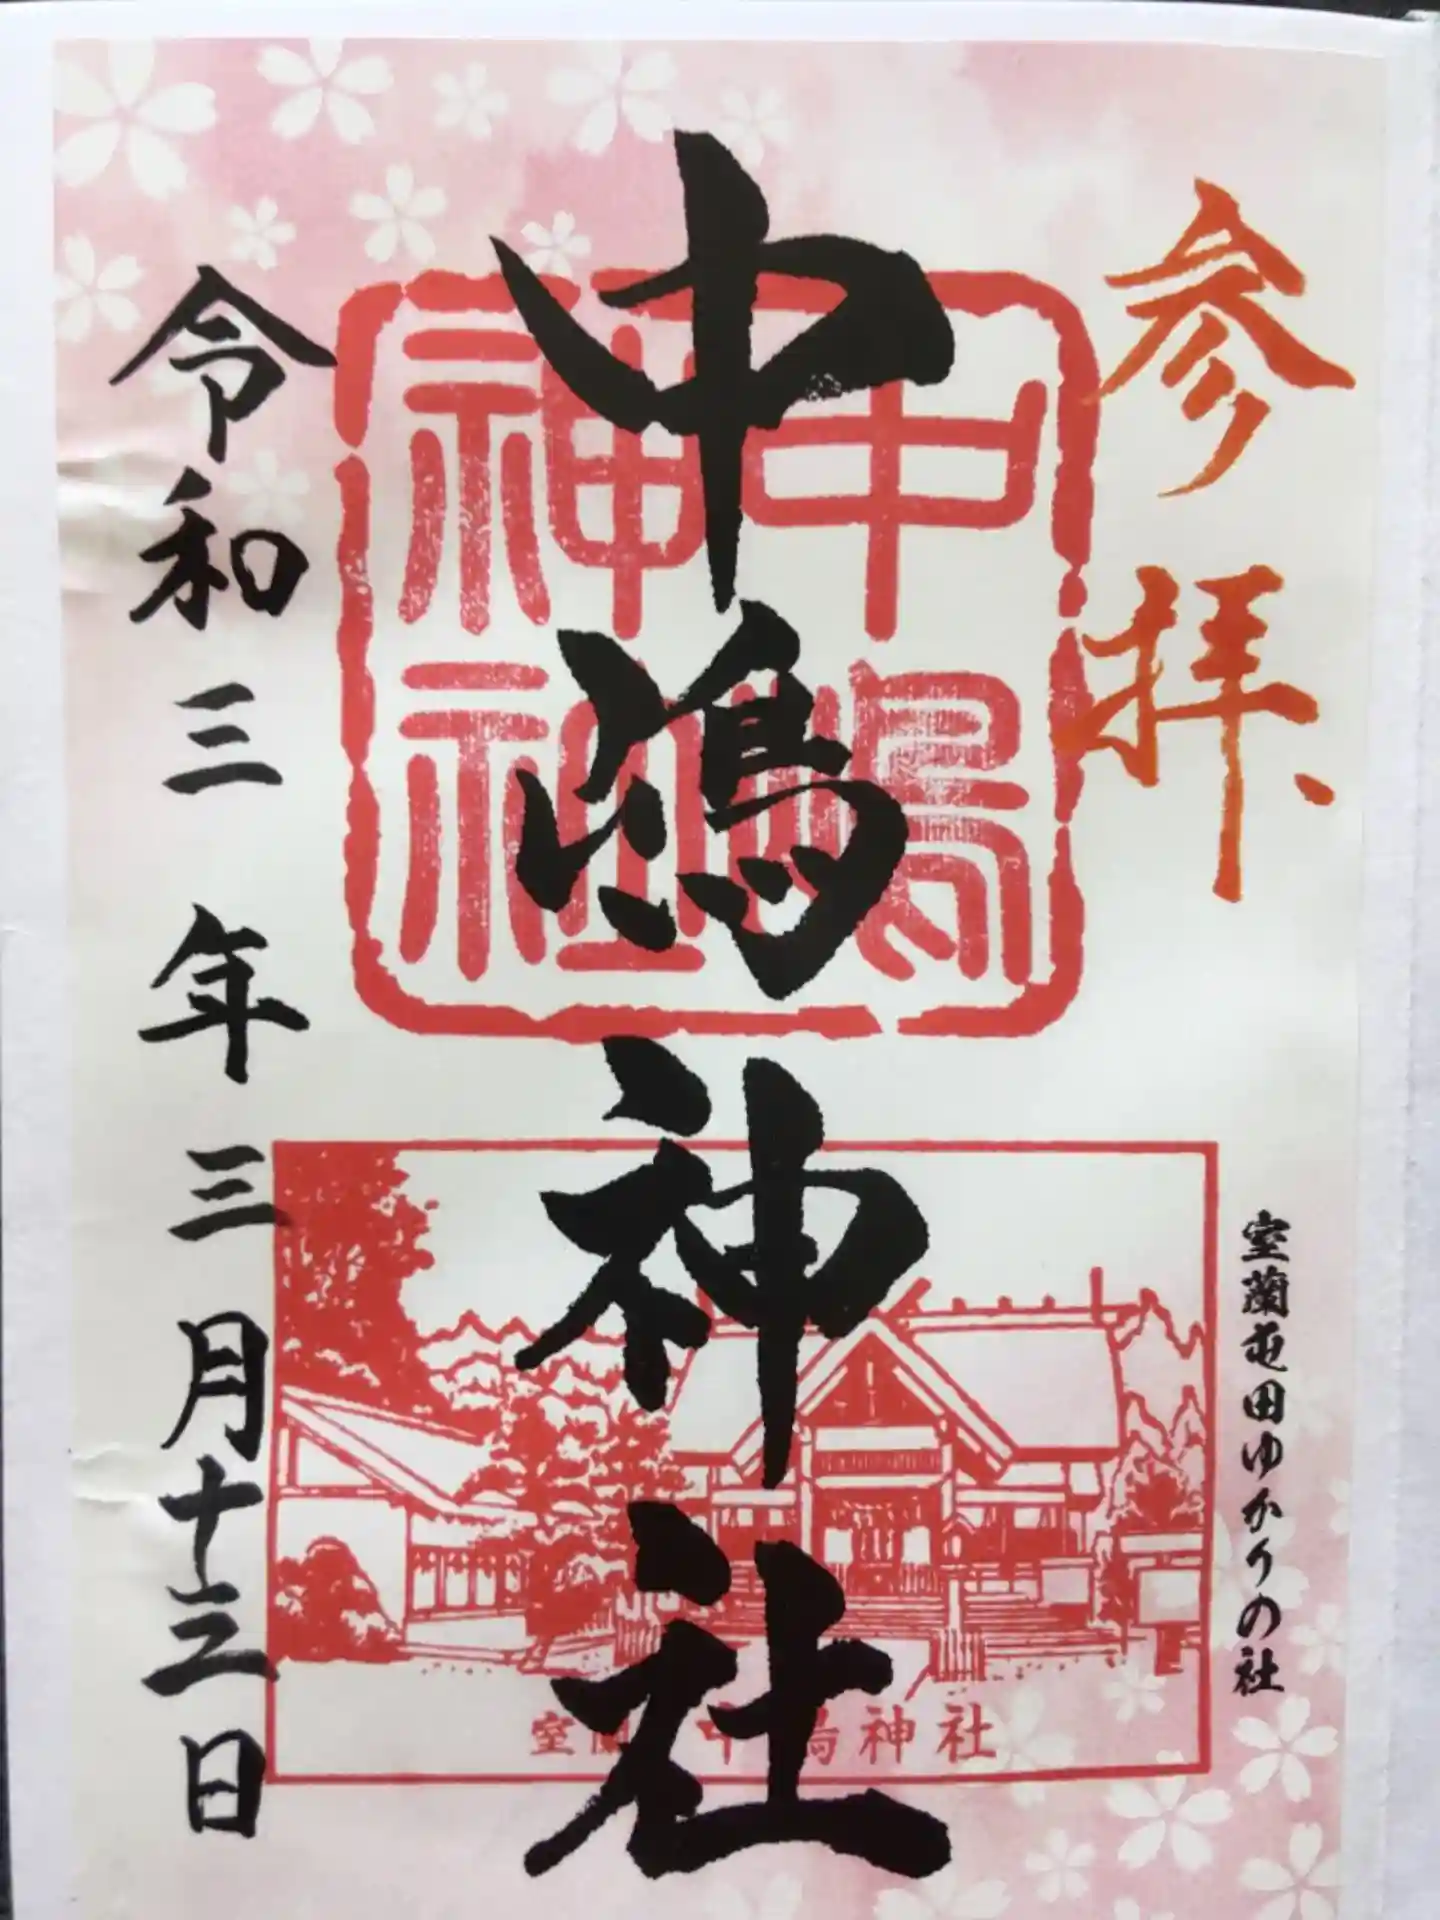 参拝
室蘭屯田ゆかりの社
中嶋神社
中嶋神社
室蘭 中嶋神社
令和三年三月十三日